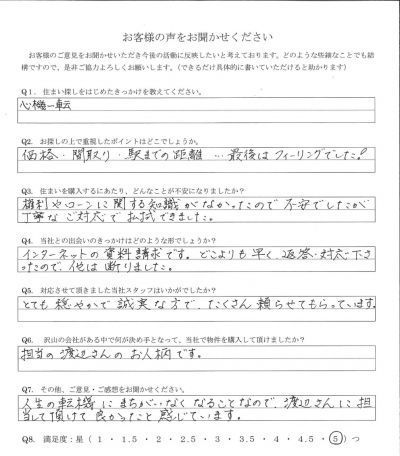 お客様の声をお聞かせください
お客様のご意見をお聞かせいただき今後の活動に反映したいと考えております。どのような些細なことでも結
構ですので、是非ご協力よろしくお願いします。（できるだけ具体的に書いていただけると助かります）
Q1. 住まい探しをはじめたきっかけを教えてください。
心機一転
Q2. お探しの上で重視したポイントはどこでしょうか。
価格・間取り・駅までの距離…最後はフィーリングでした！
Q3. 住まいを購入するにあたり、どんなことが不安になりましたか？
権利やローンに関する知識がなかったので不安でしたが
丁寧なご対応で払拭できました。
Q4. 当社との出会いのきっかけはどのような形でしょうか？
インターネットの資料請求です。どこよりも早く返答・対応下さ
ったので、他は断りました。
Q5. 対応させて頂きました当社スタッフはいかがでしたか？
とても穏やかで誠実な方で、たくさん頼らせてもらっています。
Q6. 沢山の会社がある中で何が決め手となって、当社で物件を購入して頂けましたか？
担当の渡辺さんのお人柄です。
Q7. その他、ご意見・ご感想をお聞かせください。
人生の転機にまちがいなくなることなので、渡辺さんに担
当して頂けて良かったと感じています。
Q8. 満足度：星（ 1 ・ 1.5 ・ 2 ・ 2.5 ・ 3 ・ 3.5 ・ 4 ・ 4.5 ・ 5 ）つ